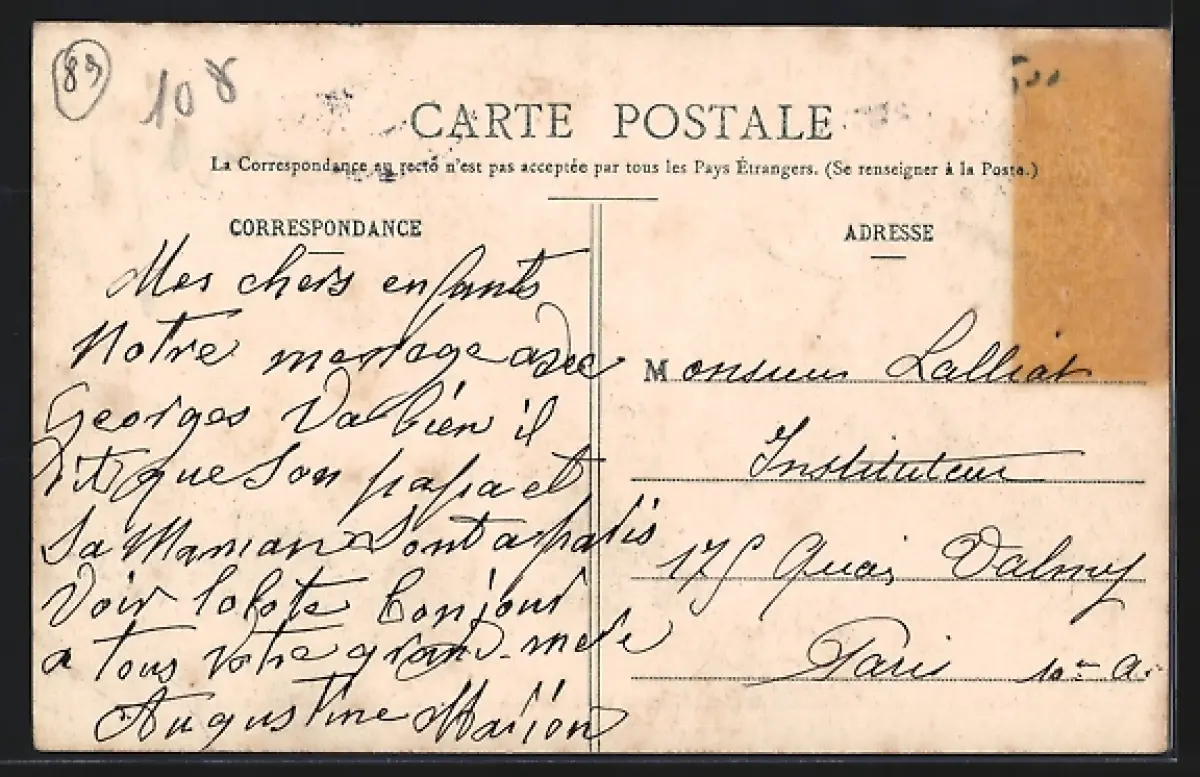 89
108
CARTE POSTALE
La Correspondance au recto n'est pas acceptée par tous les Pays Étrangers. (Se renseigner à la Poste.)
CORRESPONDANCE
Mes chers enfants
Notre menage avec
Georges Va bien il
Dit que Son papa et
Sa Maman Sont a paris
Voir lolote bonjour
a tous votre grand-mere
Augustine
ADRESSE
Monsieur Lalliat
Instituteur
175 Quai Valmy
Paris 10me A.